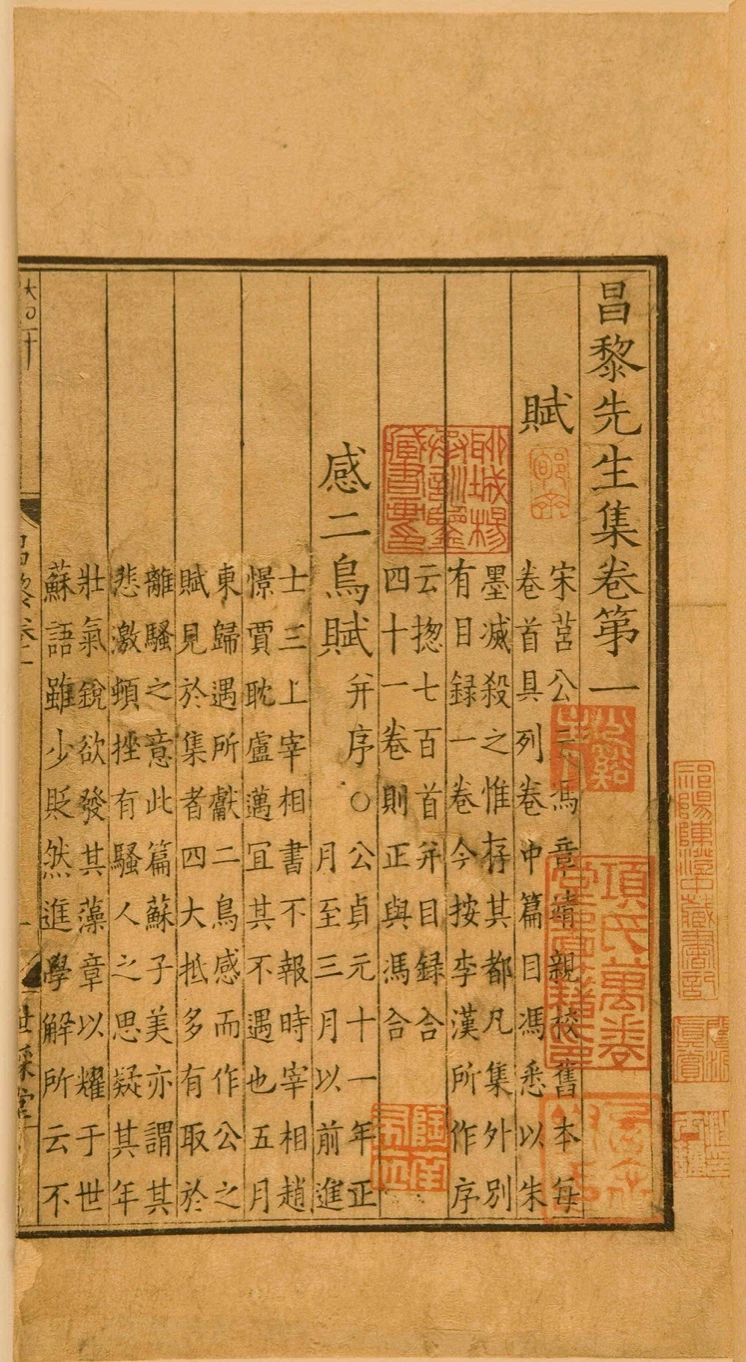 昌黎先生集卷第一
賦
宋莒公云馮章靖親校舊本每
卷首具列卷中篇目馮悉以朱
墨滅殺之惟存其都凡集外別
有目録一卷今按李漢所作序
云揔七百首并目録合
四十一卷則正與馮合
感二鳥賦
并序〇公貞元十一年正
月至三月以前進
士三上宰相書不報時宰相趙
憬賈耽盧邁冝其不遇也五月
東歸遇所獻二鳥感而作公之
賦見於集者四大抵多有取於
離騷之意此篇蘇子美亦謂其
悲激頓挫有騷人之思疑其年
壯氣銳欲發其藻章以耀于世
蘇語雖少貶然進學解所云不
昌黎卷一
世綵堂
聊城楊承訓鑒藏書畫印
項氏萬卷堂圖籍印
祁陽陳澄中藏書記